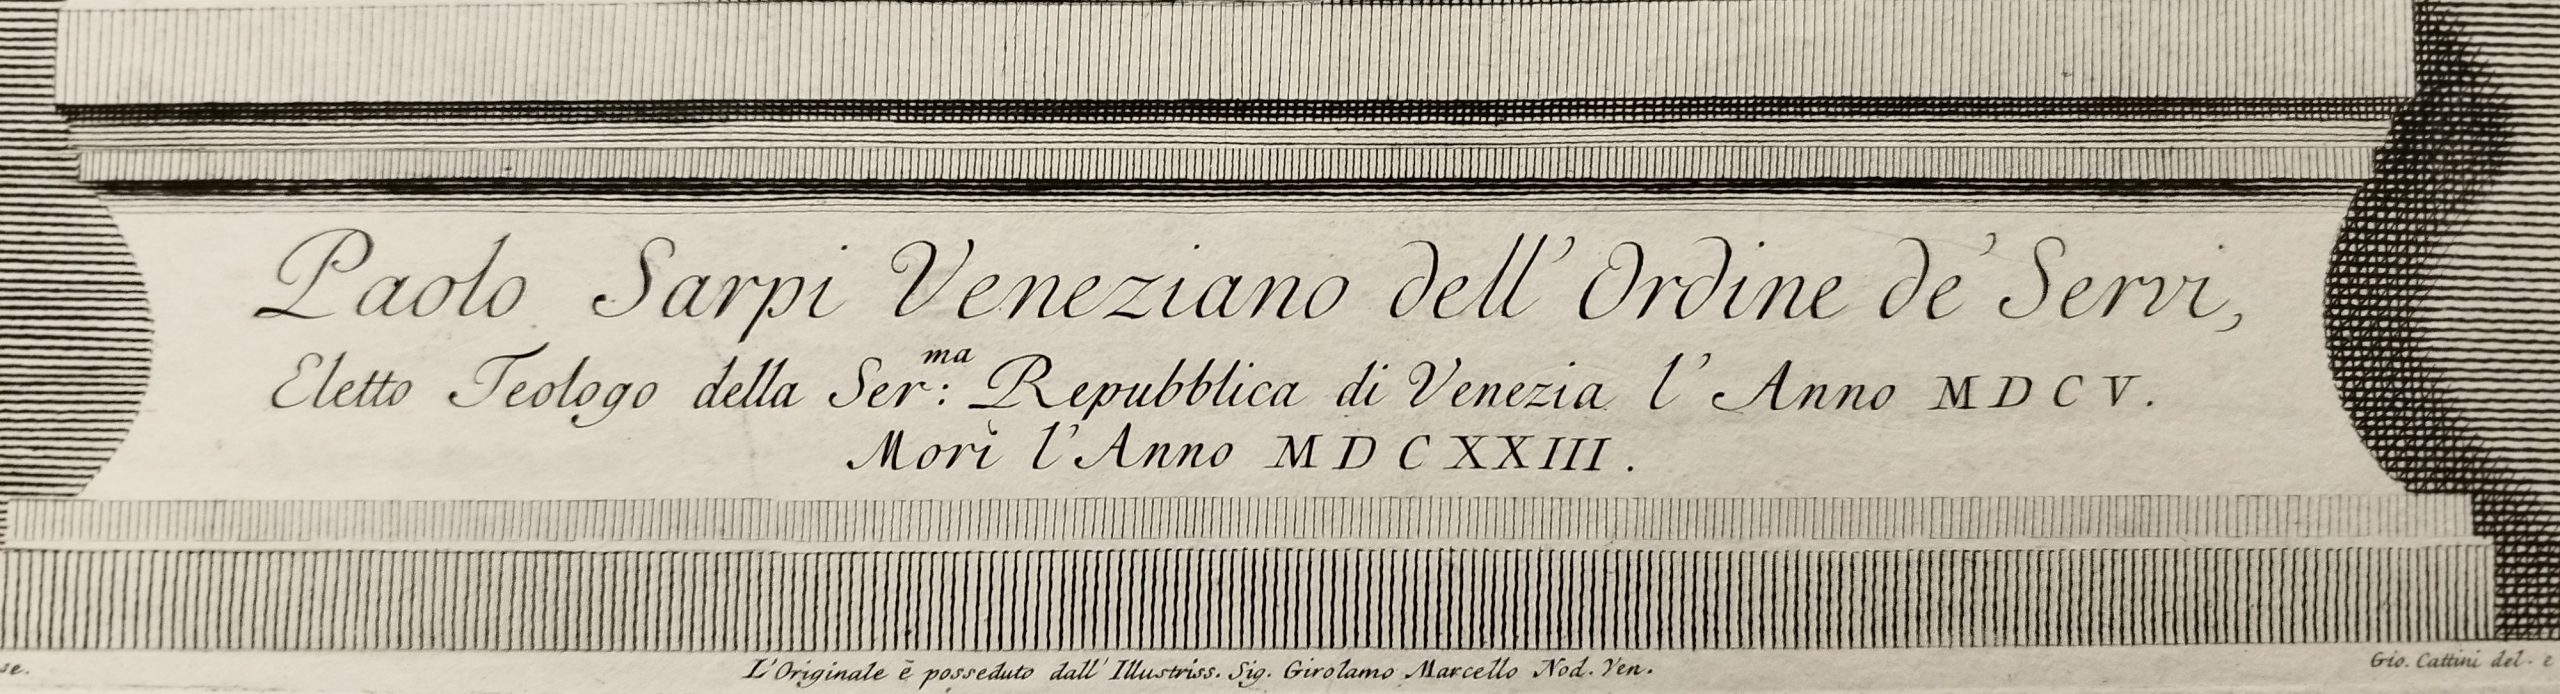 Paolo Sarpi Veneziano dell' Ordine de' Servi,
Eletto Teologo della Ser.ma: Repubblica di Venezia l' Anno MDCV.
Morì l' Anno MDCXXIII.
se. L'Originale è posseduto dall' Illustriss. Sig. Girolamo Marcello Nod. Ven. Gio. Cattini del. e